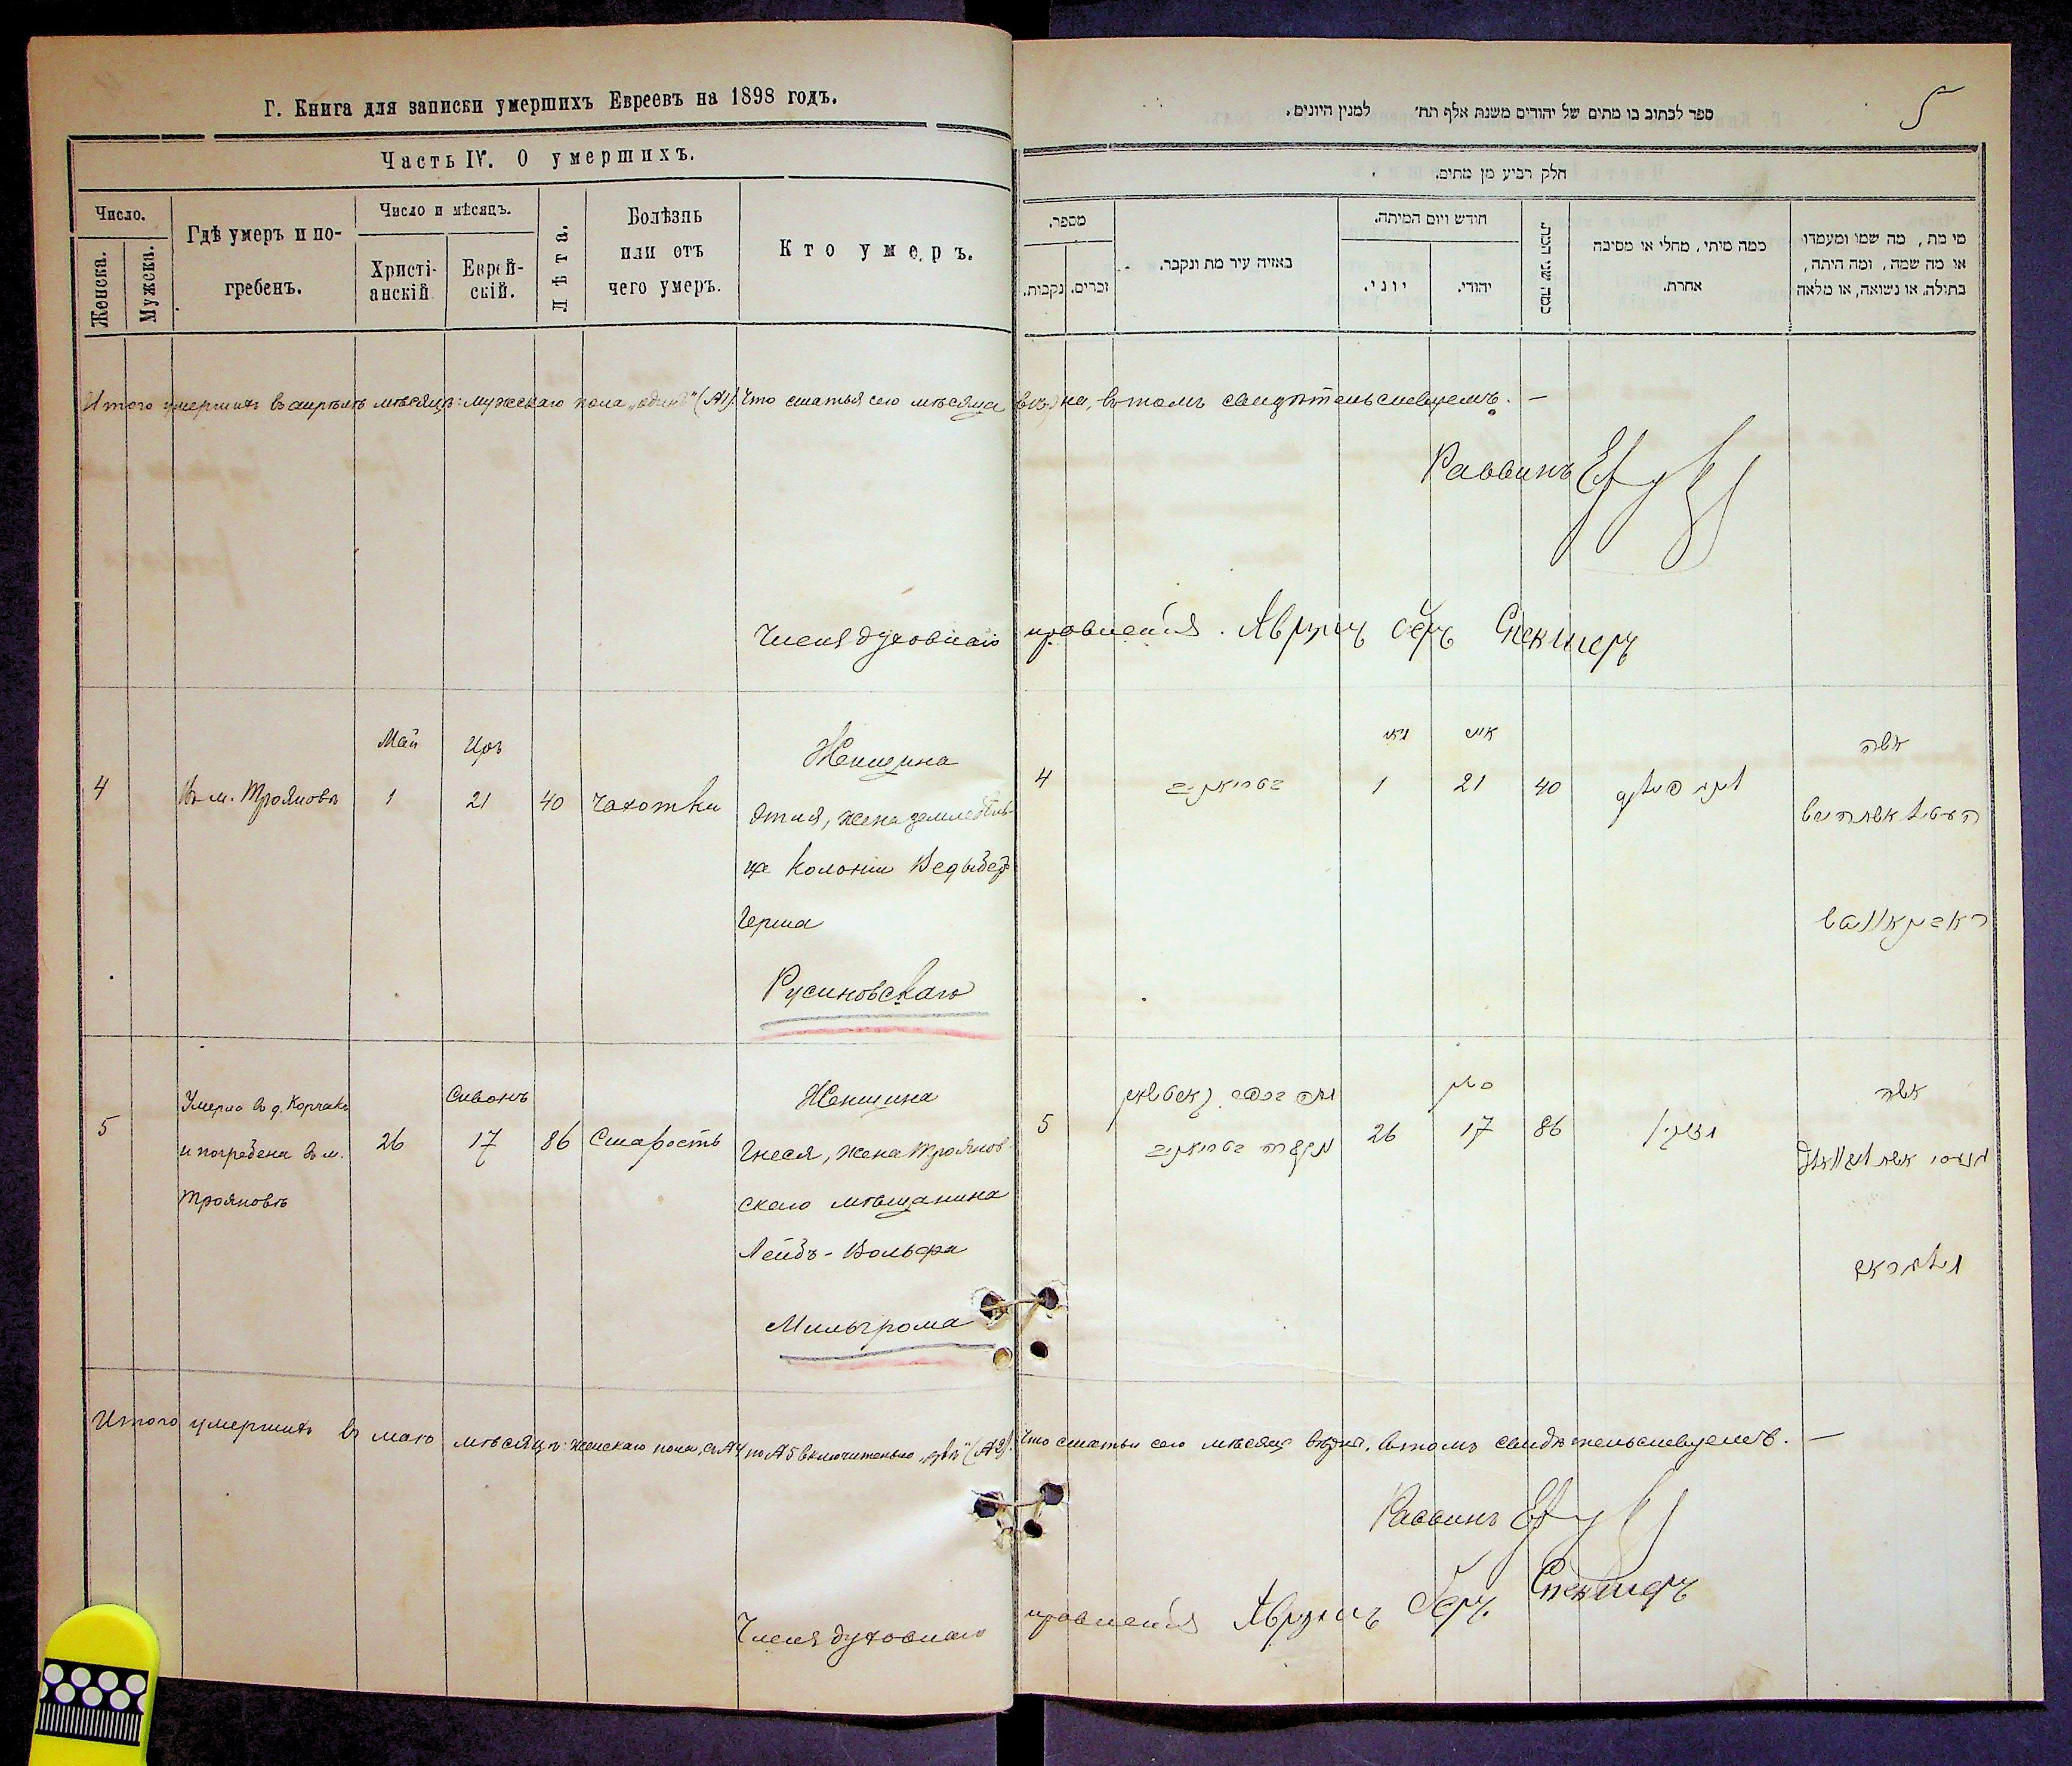 Г. Книга для записки умершихъ Евреевъ на 1898 годъ.
Часть IV. О умершихъ.
Число.
Женска.
Мужска.
Гдѣ умеръ и по-
гребенъ.
Число и мѣсяцъ.
Христі-
анскій
Еврей-
скій.
Лѣта.
Болѣзнь
или отъ
чего умеръ.
Кто умеръ.
ספר לכתוב בו מתים של יהודים משנת אלף תח׳ למנין היונים.
5
חלק רביע מן מתים.
מספר.
נקבות.
זכרים.
באיזה עיר מת ונקבר.
חודש ויום המיתה.
יוני.
יהודי.
כמה שני המת.
כמה מיתי, מחלי או מסיבה
אחרת.
מי מת, מה שמו ומעמדו
או מה שמה, ומה היתה,
בתילה, או נשואה, או מלאה
Итого умершихъ въ апрѣлѣ мѣсяцѣ: мужскаго пола „одинъ" (№1). Что статья сего мѣсяца вѣрна, въ томъ свидѣтельствуемъ. —
Раввинъ
Членъ духовнаго правленія. Аврумъ Беръ Спекторъ
Май Іръ Женщина
4 Въ м. Трояновѣ 1 21 40 Чахотки Этля, жена земледѣль-
ца колоніи
Герша
Русиновскаго
4 1 21 40
אשה
Умерла въ д. Корчакъ Сивонъ Женщина
5 и погребена въ м. 26 17 86 Старость Гнеся, жена Троянов-
Трояновѣ скаго мѣщанина
Лейбъ-Вольфа
Мильгрома
5 26 17 86
אשה
Итого умершихъ въ маѣ мѣсяцѣ: женскаго пола, съ №4 по №5 включительно „двѣ" (№2). Что статьи сего мѣсяца вѣрны, въ томъ свидѣтельствуемъ. —
Раввинъ
Членъ духовнаго правленія Аврумъ Беръ Спекторъ